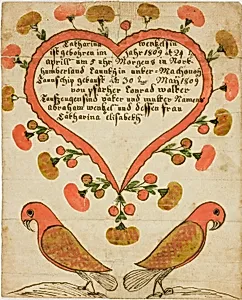 Catharina wentzelin
ist gebohren im jahr 1809 d 24 t
aprill um 5 uhr Morgens in Nort=
humberland Caunthi in unter=Machonoy
Taunschip getauft d 30 t May 1809
von pfarher Conrad walter
Taufzeugen sind vater und muter Namens
abraham wentzel und dessen frau
Catharina elisabeth